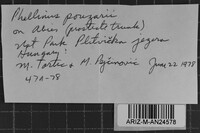 Phellinus pouzarii
on Abies (prostrate trunk)
Nat Park Plitvička jezera
Hungary!
M. Tortić & M. June 22 1978
470-78
ARIZ-M-AN24578